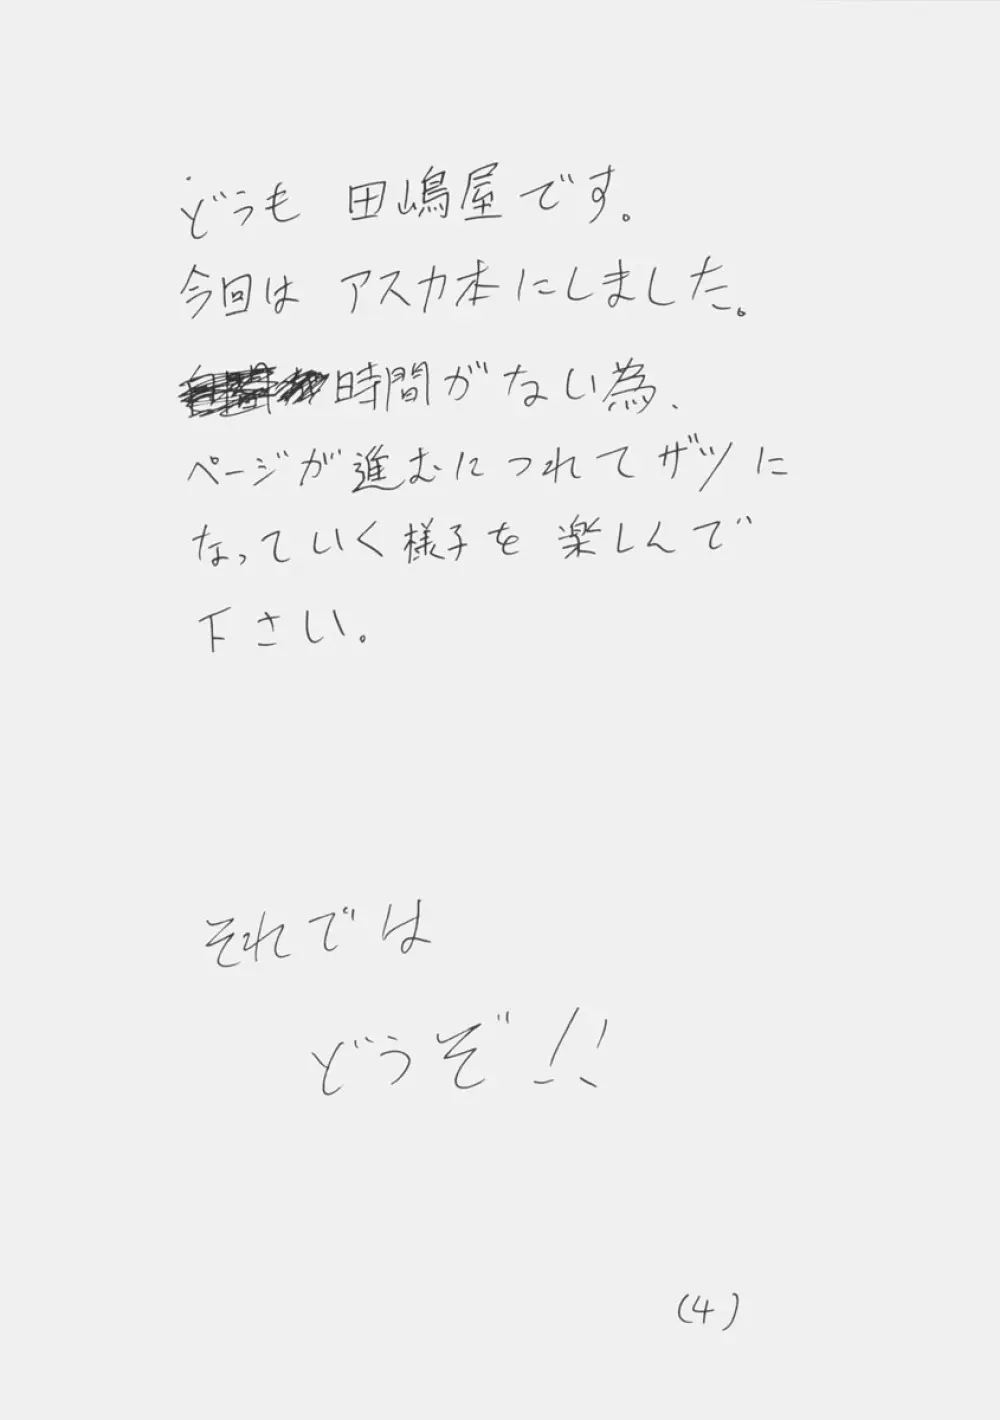 どうも 田嶋屋です。
今回は アスカ本にしました。
時間がない為、
ページが進むにつれてザツに
なっていく様子を 楽しんで
下さい。
それでは
どうぞ!!
(4)